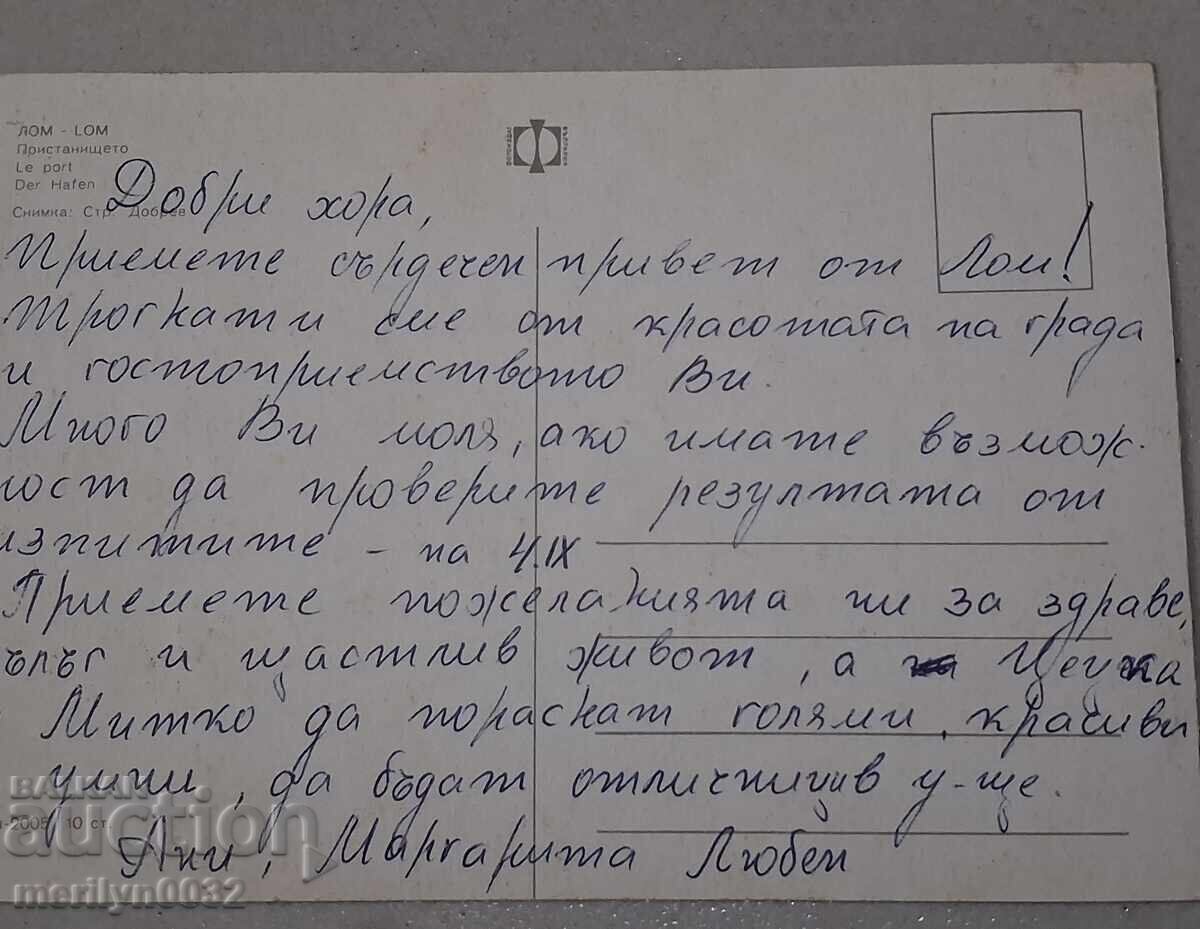 ЛОМ - LOM
Пристанището
Le port
Der Hafen
Снимка: Стр. Добрев
Добри хора,
Приемете сърдечен привет от Лом!
Трогнати сме от красотата на града
и гостоприемството Ви.
Много Ви моля, ако имате възмож-
ност да проверите резултата от
изпитите – на 4.IX
Приемете пожеланията ни за здраве,
ълъг и щастлив живот, а Цецка
Митко да пораснат големи, красиви
умни, да бъдат отличници в у-ще.
-2005 10 ст.
Ани, Маргарита Любен
BALKAN
auction
merilyn0032